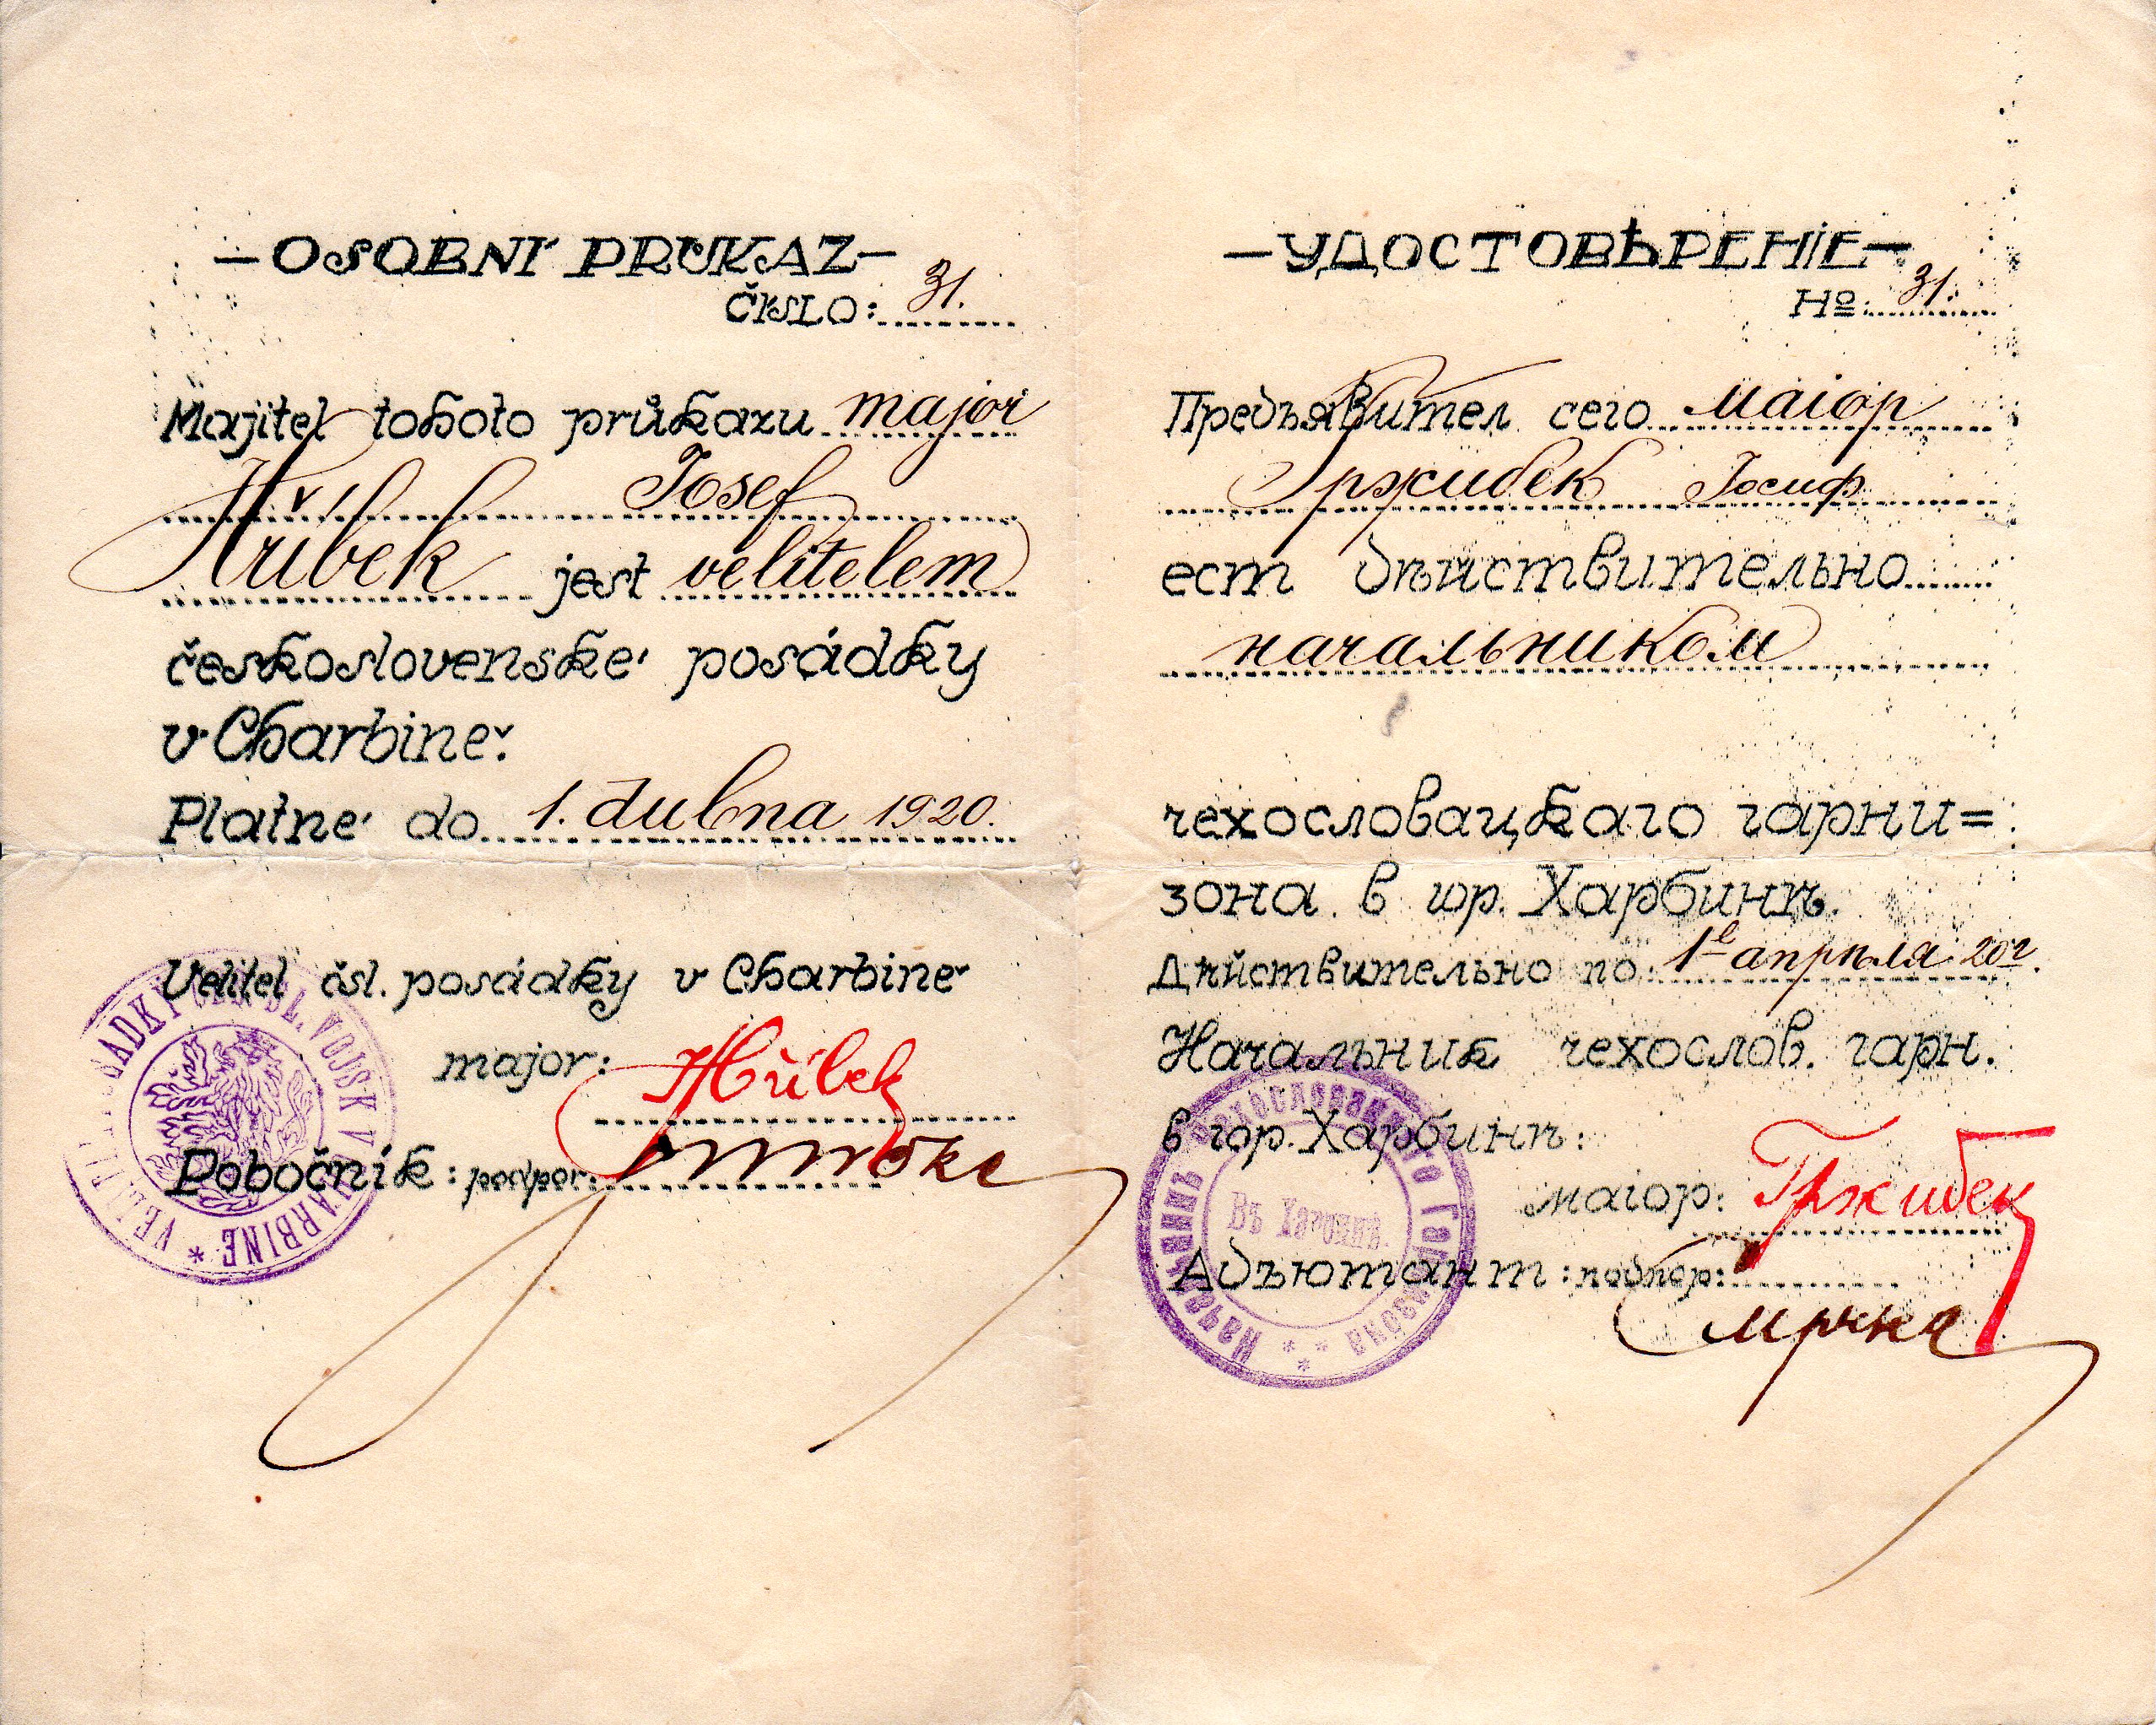 — OSOBNÍ PRŮKAZ —
ČÍSLO: 31.
Majitel tohoto průkazu major
Josef
Hříbek jest velitelem
československé posádky
v Charbině.
Platné do 1. dubna 1920.
Velitel čsl. posádky v Charbině
major: Hříbek
Pobočník: podpor:
* VELITEL POSÁDKY ČSL. VOJSK V CHARBINE
— УДОСТОВѢРЕНІЕ —
Nº: 31.
Предъявител сего маіор
Гржибек Іосиф
ест дѣйствительно
начальником
чехословацкаго гарни=
зона в гор. Харбинѣ.
Дѣйствительно по 1е апрѣля 20 г.
Начальник чехослов. гарн.
в гор. Харбинѣ:
маіор: Гржибек
Адъютант: подпор:
Начальникъ Чехословацкаго Гарнизона
Въ Харбинѣ.